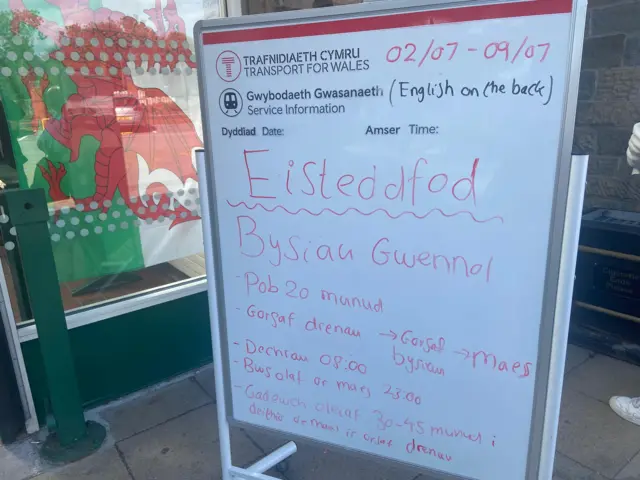 TRAFNIDIAETH CYMRU
TRANSPORT FOR WALES
02/07 - 09/07
Gwybodaeth Gwasanaeth
Service Information
(English on the back)
Dyddiad Date:
Amser Time:
Eisteddfod
Bysiau Gwennol
- Pob 20 munud
- Gorsaf drenau → Gorsaf bysiau → Maes
- Dechrau 08:00
- Bws olaf o'r maes 23:00
- Gadewch o leiaf 30-45 munud i
deithio o'r maes i'r orsaf drenau